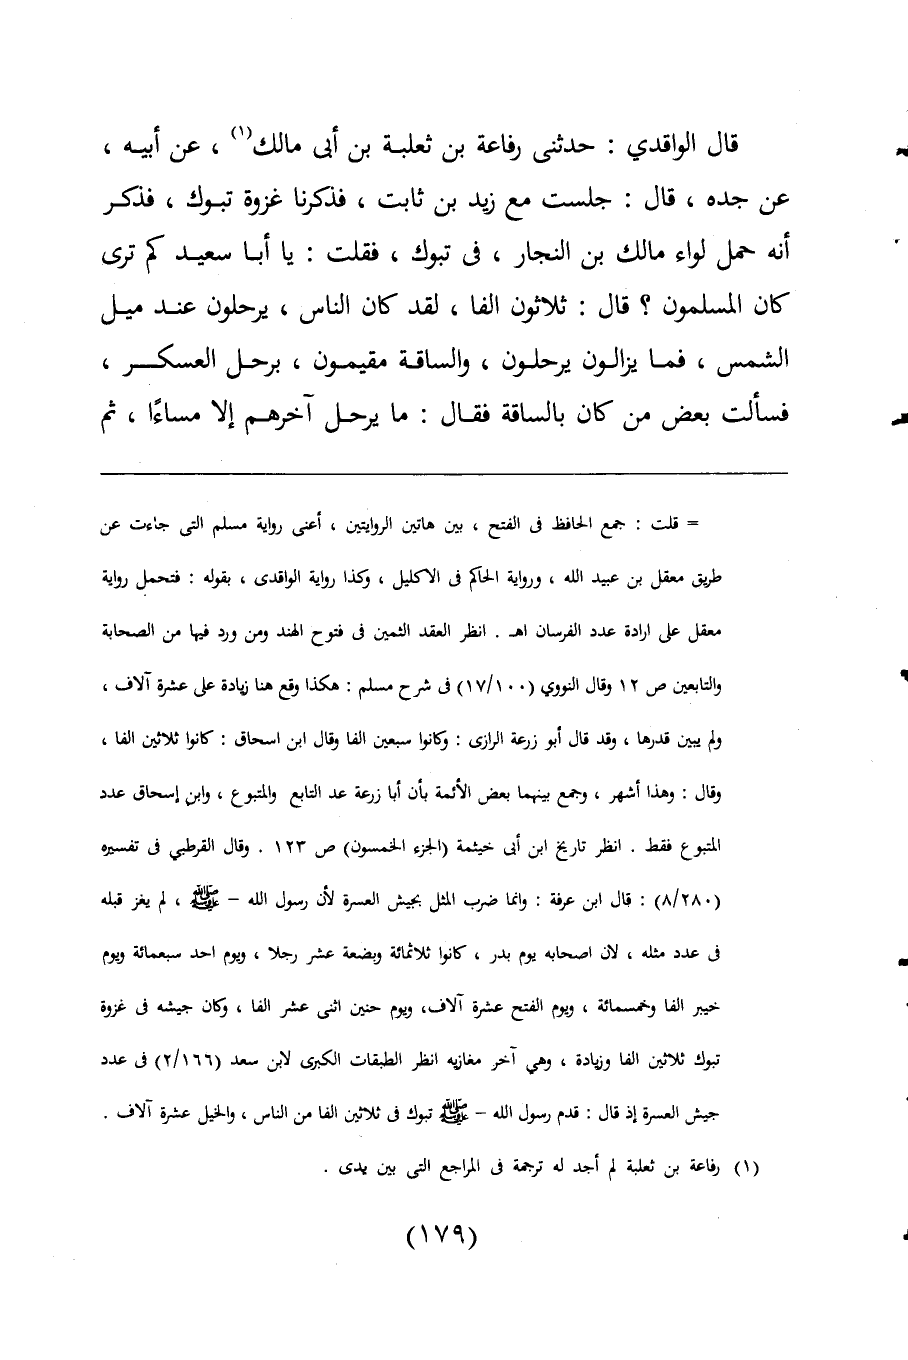 قال الواقدي : حدثنى رفاعة بن ثعلبة بن أبى مالك(١) ، عن أبيه ،
عن جده ، قال : جلست مع زيد بن ثابت ، فذكرنا غزوة تبوك ، فذكر
أنه حمل لواء مالك بن النجار ، فى تبوك ، فقلت : يا أبا سعيد كم ترى
كان المسلمون ؟ قال : ثلاثون الفا ، لقد كان الناس ، يرحلون عند ميل
الشمس ، فما يزالون يرحلون ، والساقة مقيمون ، برحل العسكر ،
فسألت بعض من كان بالساقة فقال : ما يرحل آخرهم إلا مساءًا ، ثم
= قلت : جمع الحافظ فى الفتح ، بين هاتين الروايتين ، أعنى رواية مسلم التى جاءت عن
طريق معقل بن عبيد الله ، ورواية الحاكم فى الاكليل ، وكذا رواية الواقدى ، بقوله : فتحمل رواية
معقل على ارادة عدد الفرسان اهـ . انظر العقد الثمين فى فتوح الهند ومن ورد فيها من الصحابة
والتابعين ص ١٢ وقال النووي (١٧/١٠٠) فى شرح مسلم : هكذا وقع هنا زيادة على عشرة آلاف ،
ولم يبين قدرها ، وقد قال أبو زرعة الرازى : وكانوا سبعين الفا وقال ابن اسحاق : كانوا ثلاثين الفا ،
وقال : وهذا أشهر ، وجمع بينهما بعض الأئمة بأن أبا زرعة عد التابع والمتبوع ، وابن إسحاق عدد
المتبوع فقط . انظر تاريخ ابن أبى خيثمة (الجزء الخمسون) ص ١٢٣ . وقال القرطبي فى تفسيره
(٨/٢٨٠) : قال ابن عرفة : وانما ضرب المثل بجيش العسرة لأن رسول الله – ﷺ ، لم يغز قبله
فى عدد مثله ، لان اصحابه يوم بدر ، كانوا ثلاثمائة وبضعة عشر رجلا ، ويوم احد سبعمائة ويوم
خيبر الفا وخمسمائة ، ويوم الفتح عشرة آلاف، ويوم حنين اثنى عشر الفا ، وكان جيشه فى غزوة
تبوك ثلاثين الفا وزيادة ، وهي آخر مغازيه انظر الطبقات الكبرى لابن سعد (٢/١٦٦) فى عدد
جيش العسرة إذ قال : قدم رسول الله – ﷺ تبوك فى ثلاثين الفا من الناس ، والخيل عشرة آلاف .
(١) رفاعة بن ثعلبة لم أجد له ترجمة فى المراجع التى بين يدى .
(١٧٩)